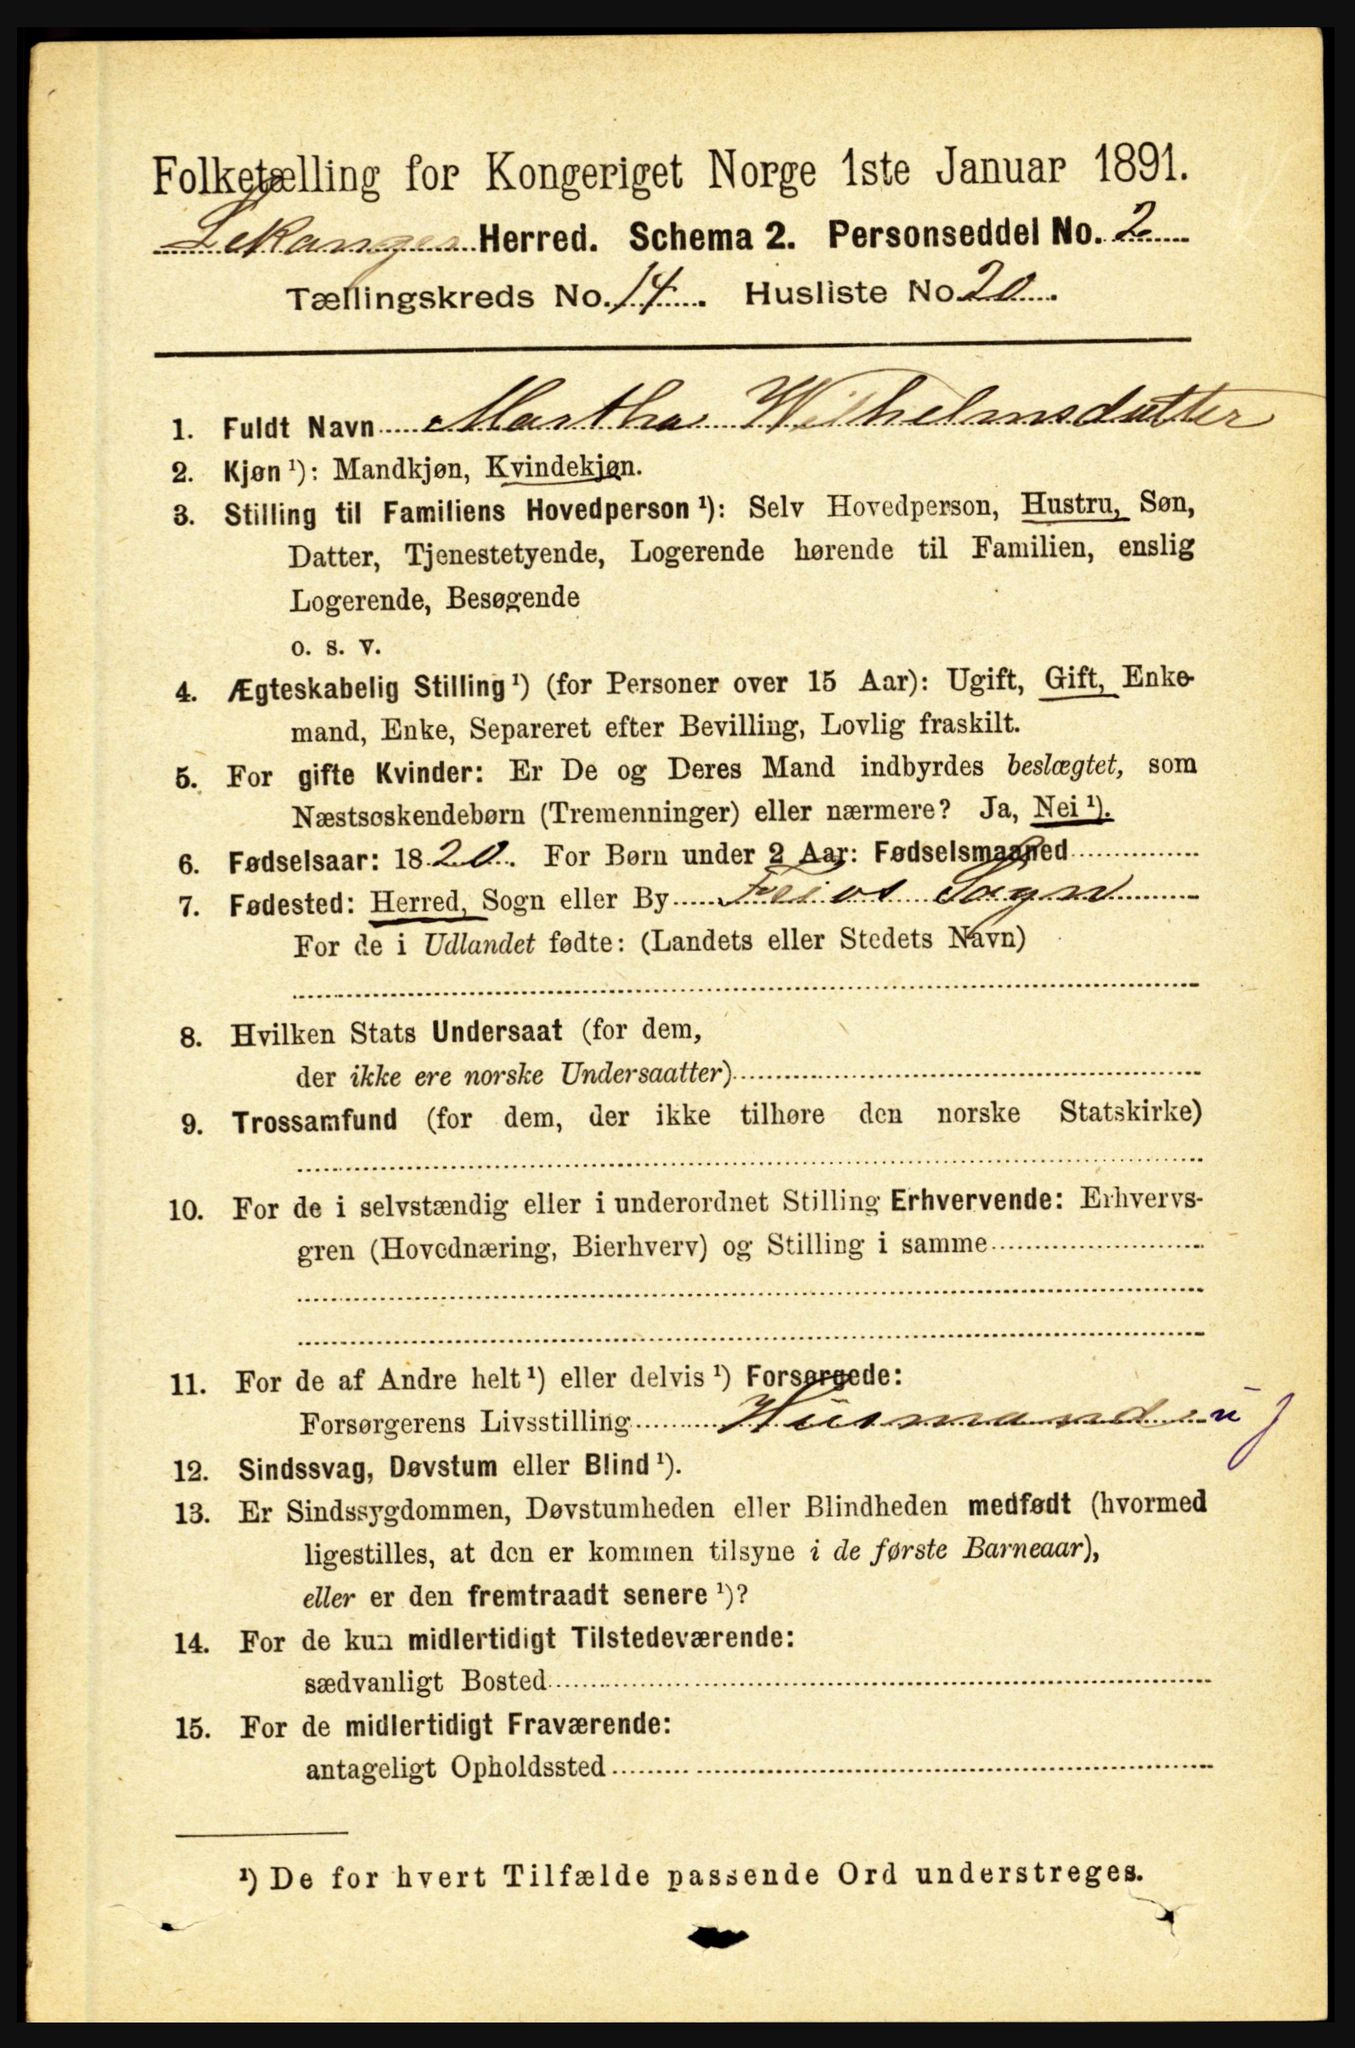 Folketælling for Kongeriget Norge 1ste Januar 1891.
Lekanger Herred. Schema 2. Personseddel No. 2
Tællingskreds No. 14. Husliste No 20.
1. Fuldt Navn Martha Wilhelmsdatter
2. Kjøn ¹): Mandkjøn, Kvindekjøn.
3. Stilling til Familiens Hovedperson ¹): Selv Hovedperson, Hustru, Søn,
Datter, Tjenestetyende, Logerende hørende til Familien, enslig
Logerende, Besøgende
o. s. v.
4. Ægteskabelig Stilling ¹) (for Personer over 15 Aar): Ugift, Gift, Enke-
mand, Enke, Separeret efter Bevilling, Lovlig fraskilt.
5. For gifte Kvinder: Er De og Deres Mand indbyrdes beslægtet, som
Næstsøskendebørn (Tremenninger) eller nærmere? Ja, Nei ¹).
6. Fødselsaar: 1820. For Børn under 2 Aar: Fødselsmaaned
7. Fødested: Herred, Sogn eller By Feios Sogn
For de i Udlandet fødte: (Landets eller Stedets Navn)
8. Hvilken Stats Undersaat (for dem,
der ikke ere norske Undersaatter)
9. Trossamfund (for dem, der ikke tilhøre den norske Statskirke)
10. For de i selvstændig eller i underordnet Stilling Erhvervende: Erhvervs-
gren (Hovednæring, Bierhverv) og Stilling i samme
11. For de af Andre helt ¹) eller delvis ¹) Forsørgede:
Forsørgerens Livsstilling Husmand u j
12. Sindssvag, Døvstum eller Blind ¹).
13. Er Sindssygdommen, Døvstumheden eller Blindheden medfødt (hvormed
ligestilles, at den er kommen tilsyne i de første Barneaar),
eller er den fremtraadt senere ¹)?
14. For de kun midlertidigt Tilstedeværende:
sædvanligt Bosted
15. For de midlertidigt Fraværende:
antageligt Opholdssted
¹) De for hvert Tilfælde passende Ord understreges.